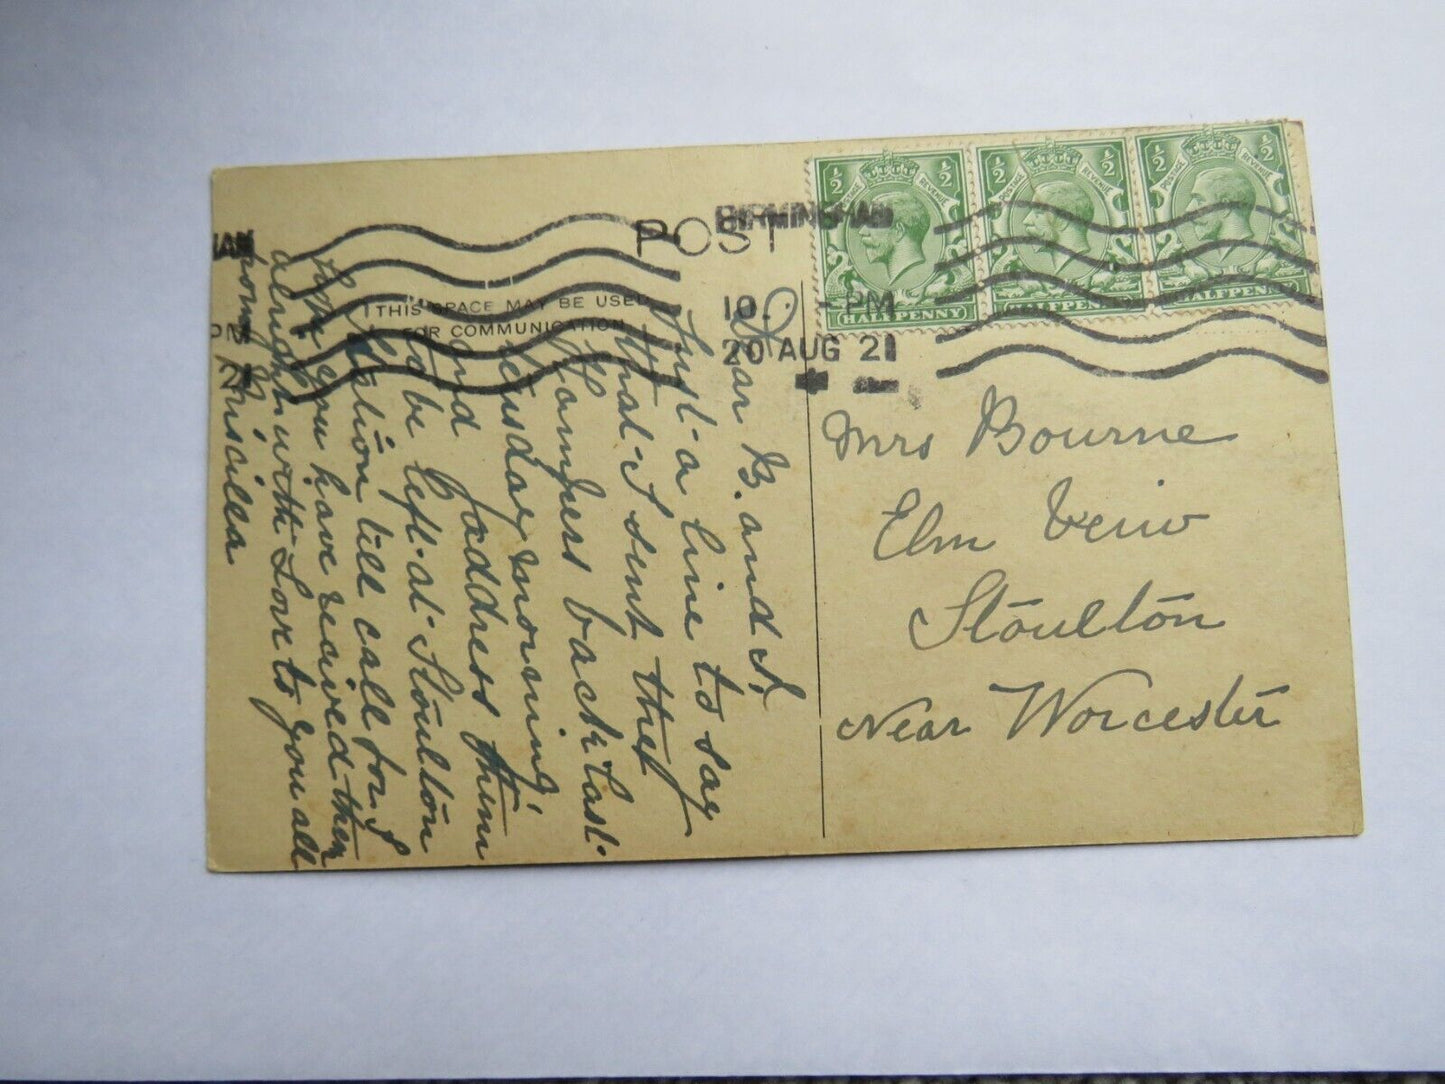 POST
BIRMINGHAM
10. - PM
20 AUG 21
HAM
PM
21
THIS SPACE MAY BE USED
FOR COMMUNICATION
½ ½
POSTAGE REVENUE
HALFPENNY
½ ½
POSTAGE REVENUE
HALFPENNY
½ ½
POSTAGE REVENUE
HALFPENNY
Mrs Bourne
Elm Veiw
Stoulton
Near Worcester
Dear B. and A,
Just a line to say
that I sent the
Hampers back last
teusday morning,
and I address them
To be left at Stoulton
Station till call for. I
hope you have reaived them
alright with Love to you all
from Priscilla